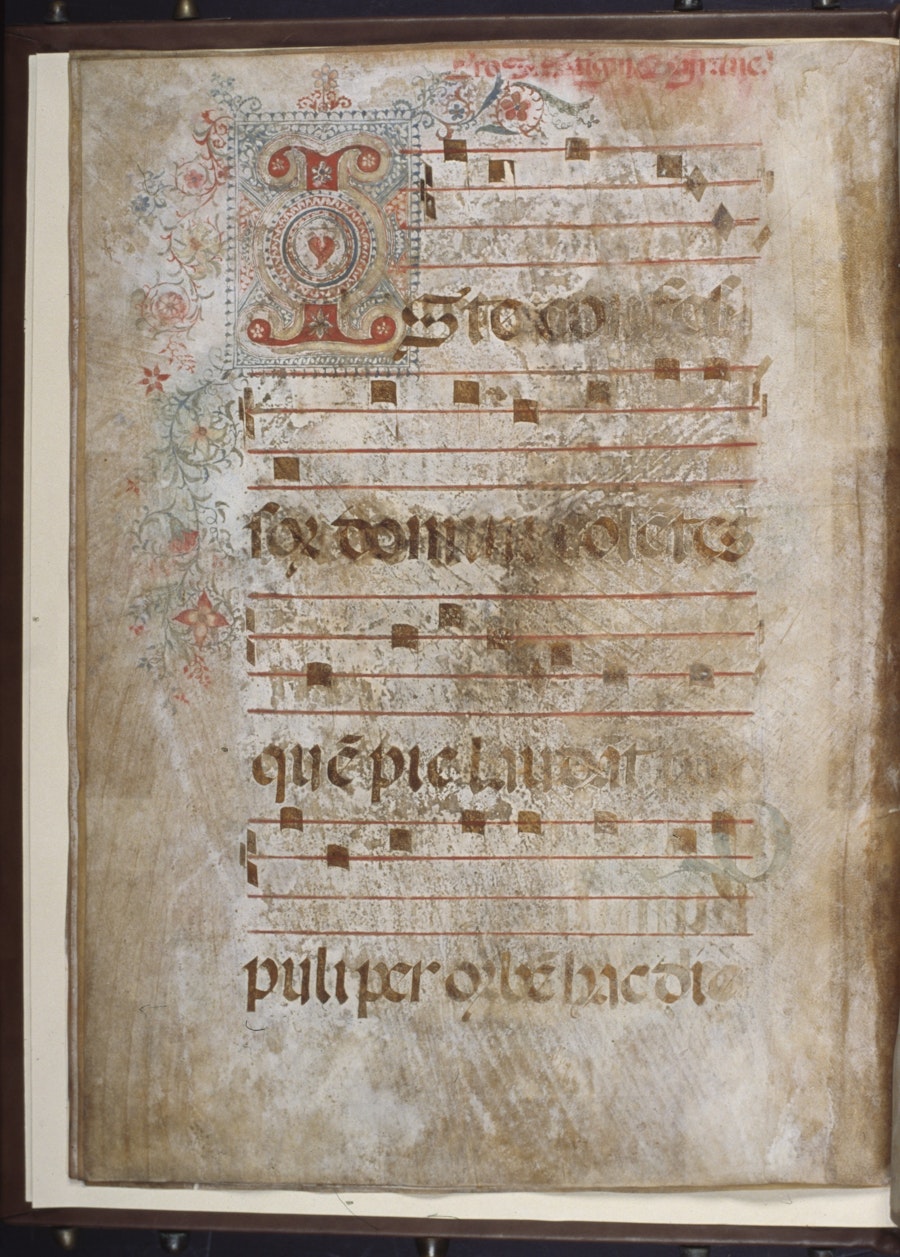 ISte confeſ
ſor domini colētes
quē pie laudāt po
puli per orbē hac die